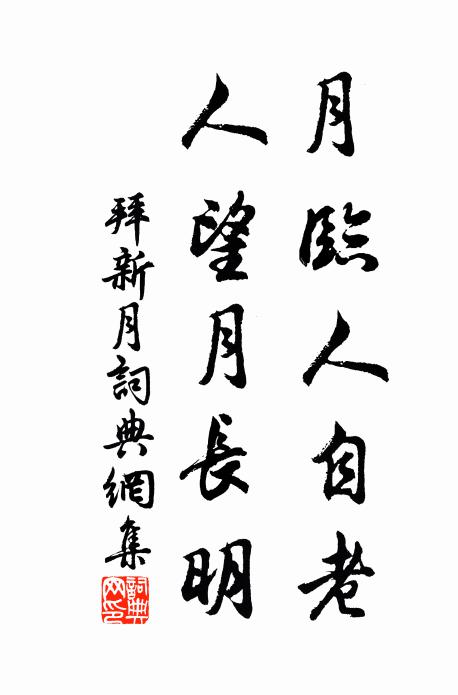 月臨人自老
人望月長明
拜新月詞典網集
詞典網印